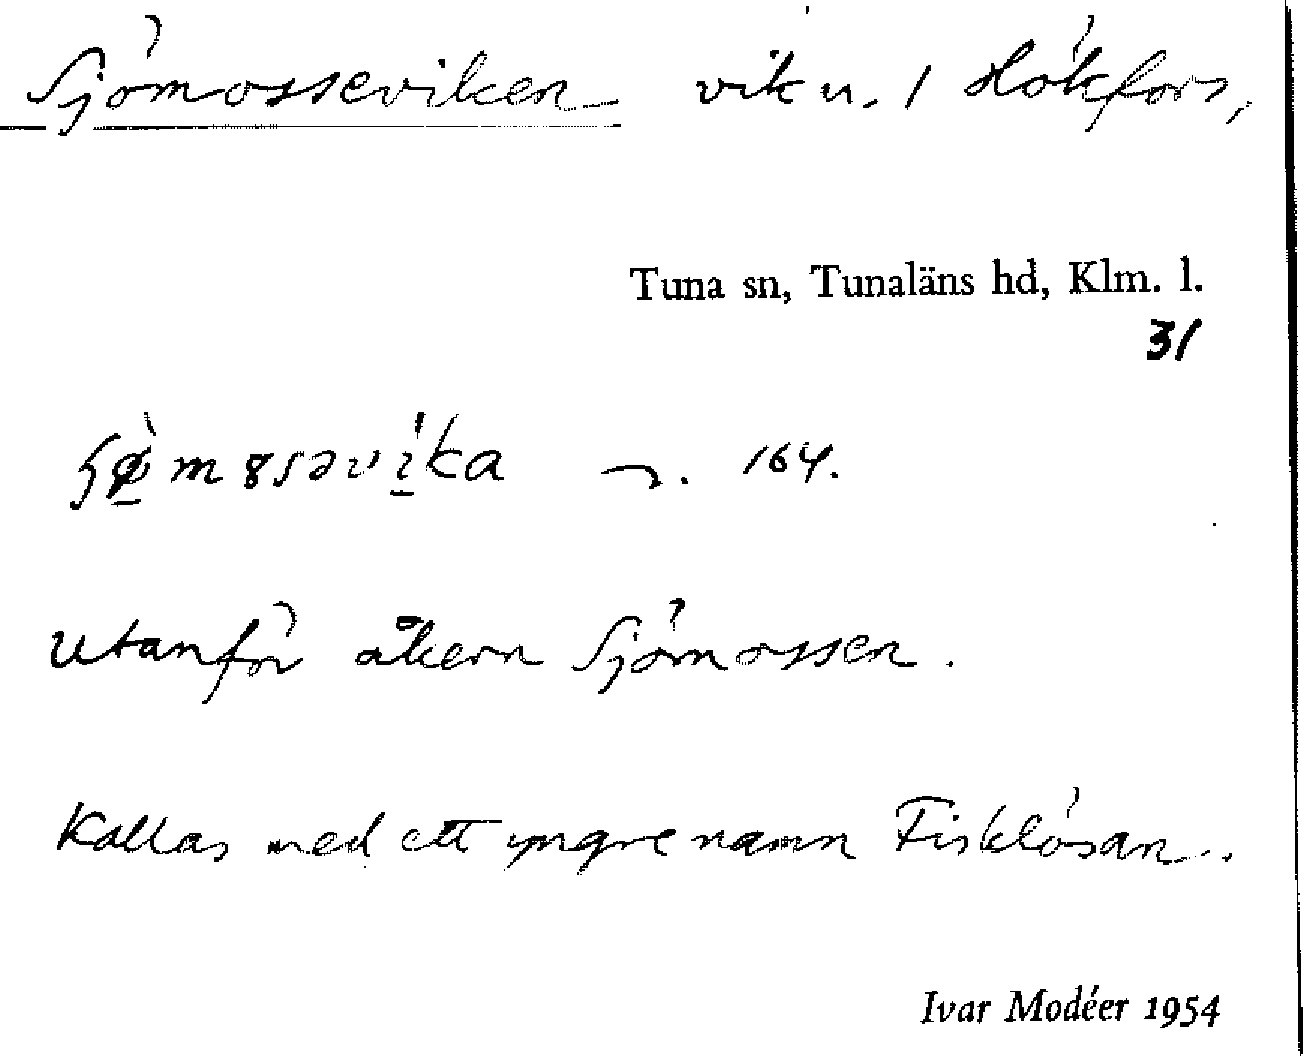 Sjömosseviken vik u. 1 Hökfors,
Tuna sn, Tunaläns hd, Klm. l.
31
164.
Utanför åkern Sjömossen.
Kallas med ett yngre namn Fisklösan.
Ivar Modéer 1954